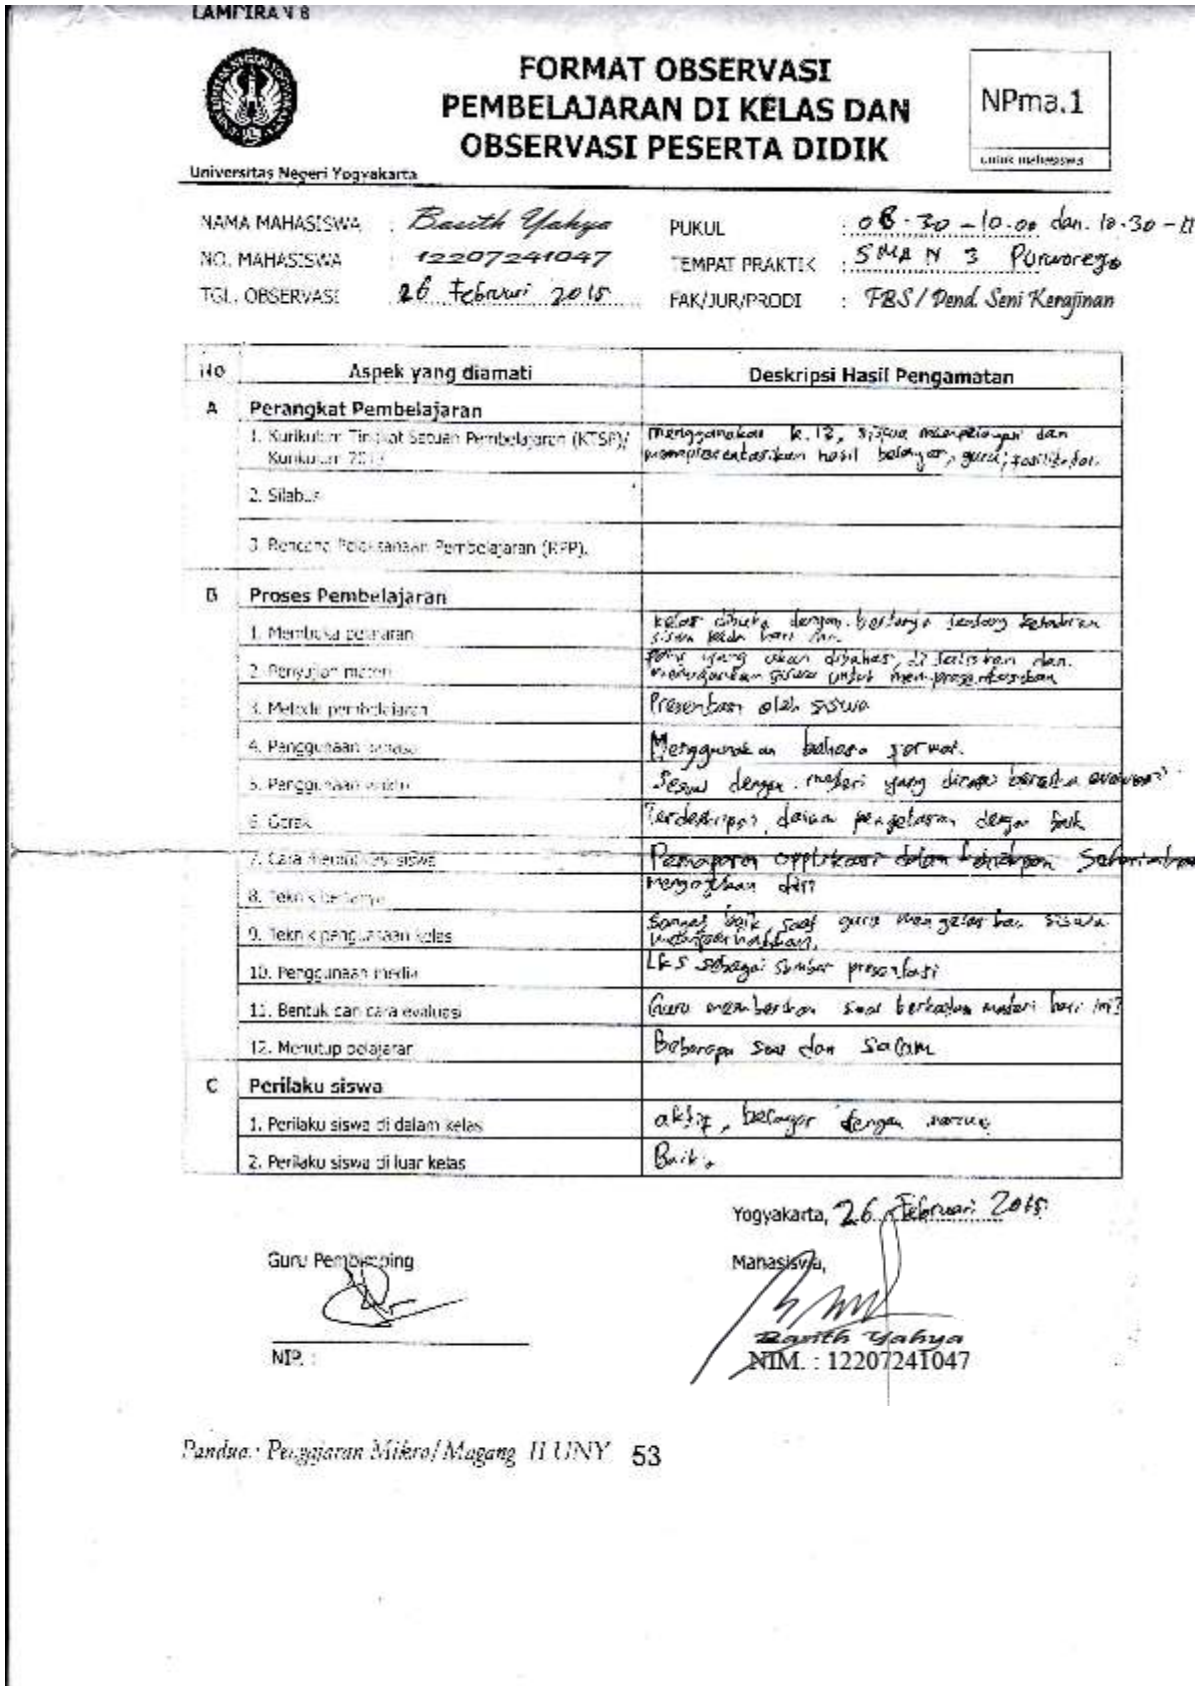 LAMPIRAN 8
FORMAT OBSERVASI
PEMBELAJARAN DI KELAS DAN
OBSERVASI PESERTA DIDIK
NPma.1
untuk mahasiswa
Universitas Negeri Yogyakarta
NAMA MAHASISWA : Basith Yahya
PUKUL : 08.30 - 10.00 dan 10.30 -
NO. MAHASISWA : 12207241047
TEMPAT PRAKTIK : SMA N 3 Purworejo
TGL. OBSERVASI : 26 Februari 2015
FAK/JUR/PRODI : FBS / Pend. Seni Kerajinan
No Aspek yang diamati Deskripsi Hasil Pengamatan
A Perangkat Pembelajaran
1. Kurikulum Tingkat Satuan Pembelajaran (KTSP)/
Kurikulum 2013
menggunakan k.13, siswa mempelajari dan
mempresentasikan hasil belajar, guru; fasilitator.
2. Silabus
3. Rencana Pelaksanaan Pembelajaran (RPP).
B Proses Pembelajaran
1. Membuka pelajaran
kelas dibuka dengan bertanya tentang kehadiran
siswa pada hari ini.
2. Penyajian materi
yang akan dibahas, di tuliskan dan
menugaskan siswa untuk mempresentasikan
3. Metode pembelajaran Presentasi oleh siswa
4. Penggunaan bahasa Menggunakan bahasa formal.
5. Penggunaan waktu Sesuai dengan materi yang beserta evaluasi
6. Gerak dalam penjelasan dengan baik
7. Cara memotivasi siswa Pemaparan applikasi dalam kehidupan
8. Teknik bertanya Mengajukan diri
9. Teknik penguasaan kelas
Sangat baik, saat guru menjelaskan siswa
memperhatikan.
10. Penggunaan media LKS sebagai sumber presentasi
11. Bentuk dan cara evaluasi Guru memberikan soal berkaitan materi hari ini
12. Menutup pelajaran Beberapa soal dan Salam
C Perilaku siswa
1. Perilaku siswa di dalam kelas aktif, belajar dengan
2. Perilaku siswa di luar kelas Baik.
Yogyakarta, 26 Februari 2015
Guru Pembimbing
Mahasiswa,
Basith Yahya
NIP. :
NIM. : 12207241047
Panduan Pengajaran Mikro/Magang II UNY 53